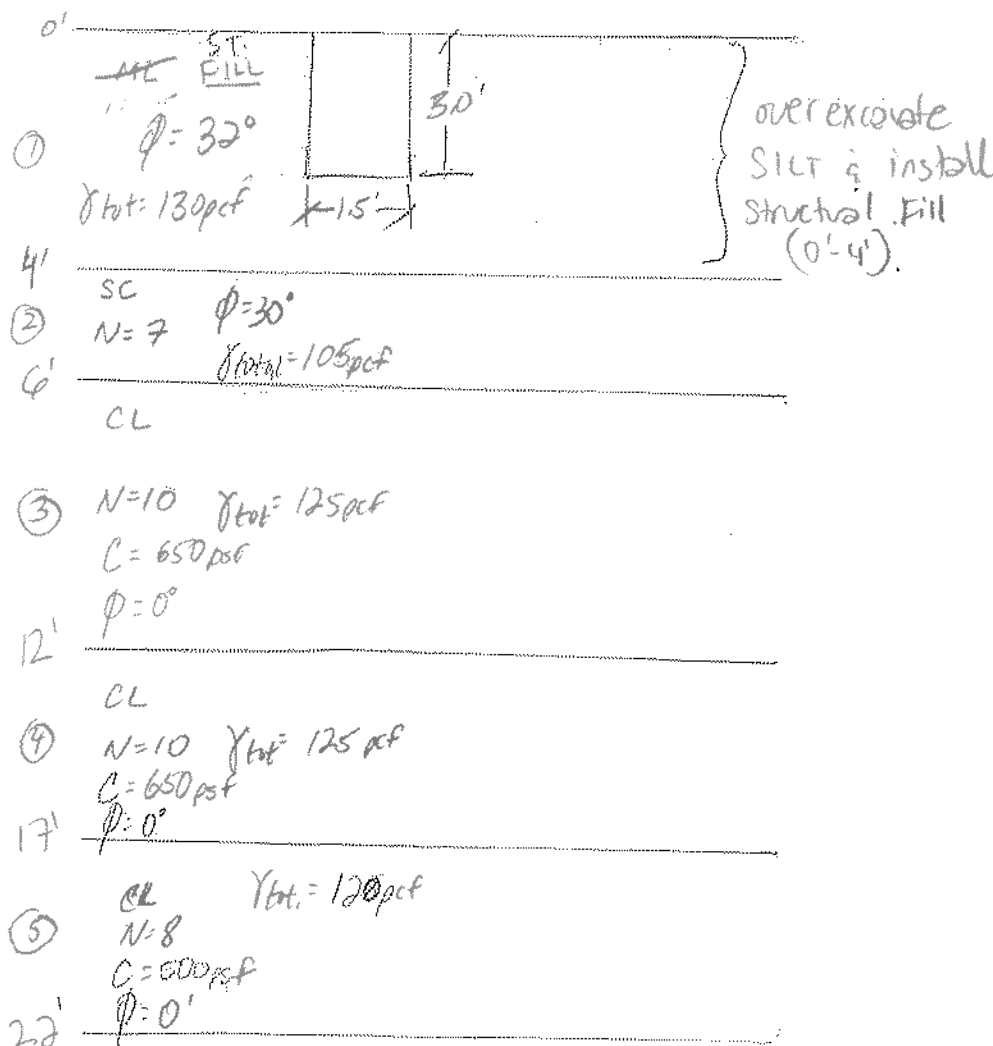 0'
ST.
ML FILL
① φ = 32°
γtot = 130pcf
3.0'
1.5'
over excavate
SILT & install
Structural Fill
(0'-4').
4'
SC
② N = 7 φ = 30°
γtotal = 105pcf
6'
CL
③ N = 10 γtot = 125pcf
C = 650 psf
φ = 0°
12'
CL
④ N = 10 γtot = 125 pcf
C = 650 psf
φ = 0°
17'
CL γtot. = 120pcf
⑤ N = 8
C = 500psf
φ = 0'
22'